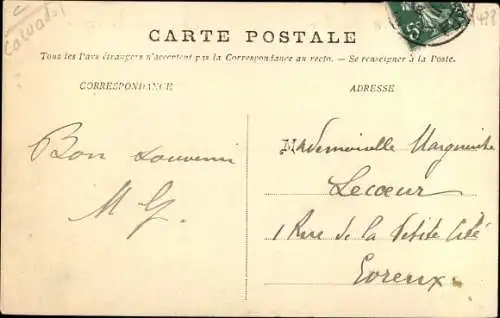 C
Calvados
498
5
CARTE POSTALE
Tous les Pays étrangers n'acceptent pas la Correspondance au recto. — Se renseigner à la Poste.
CORRESPONDANCE
ADRESSE
Bon souvenir
M G.
Mademoiselle Marguerite
Lecœur
1 Rue de la Petite Cité
Evreux